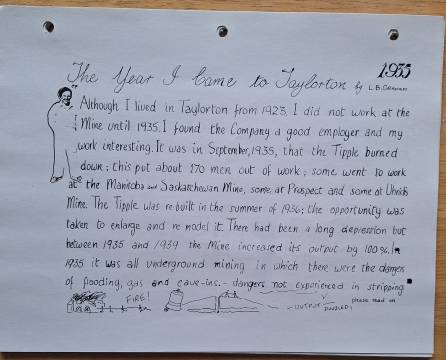 1935
The Year I Came to Taylorton by L.B.
Although I lived in Taylorton from 1923, I did not work at the
Mine until 1935. I found the Company a good employer and my
work interesting. It was in September, 1935, that the Tipple burned
down; this put about 170 men out of work; some went to work
at the Manitoba and Saskatchewan Mine, some at Prospect and some at
Mine. The Tipple was re-built in the summer of 1936; the opportunity was
taken to enlarge and re model it. There had been a long depression but
between 1935 and 1939 the Mine increased its output by 100%. In
1935 it was all underground mining in which there were the dangers
of flooding, gas and cave-ins. - dangers not experienced in stripping.
FIRE!
OUTPUT DOUBLED!
please read on